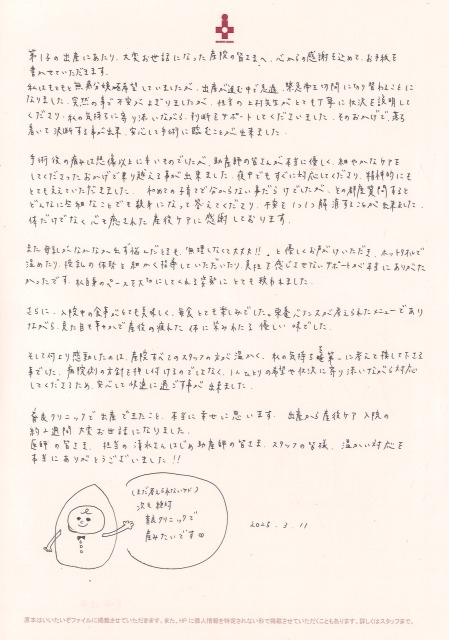 第1子の出産にあたり、大変お世話になった産院の皆さまへ、心からの感謝を込めて、お手紙を
書かせていただきます。
私はもともと無痛分娩を希望していましたが、出産が進む中で急遽、緊急帝王切開に切り替わることに
なりました。突然の事で不安もよぎりましたが、担当の上村先生がとても丁寧に状況を説明して
くださり、私の気持ちに寄り添いながら、判断をサポートしてくださいました。そのおかげで、落ち
着いて決断する事が出来、安心して手術に臨むことが出来ました。
手術後の痛みは想像以上に辛いものでしたが、助産師の皆さんが本当に優しく、細やかなケアを
してくださったおかげで乗り越える事が出来ました。夜中でもすぐに対応してくださり、精神的にも
とても支えていただきました。初めての子育てで分からない事だらけでしたが、その都度質問すると
どんなに些細なことでも親身になって答えてくださり、不安を1つ1つ解消することが出来ました。
体だけでなく心も癒された産後ケアに感謝しております。
また母乳がなかなか出ず悩んだときも、「無理しなくて大丈夫!!」と優しくお声がけいただき、ホットタオルで
温めたり、授乳の体勢を細かく指導していただいたり、負担を感じさせないサポートが本当にありがた
かったです。私自身のペースを大切にしてくれる姿勢にとても救われました。
さらに、入院中の食事がとても美味しく、毎食とても楽しみでした。栄養バランスが考えられたメニューであり
ながら、見た目も華やかで産後の疲れた体に染みわたる優しい味でした。
そして何より感動したのは、産院すべてのスタッフの方が温かく、私の気持ちを第一に考えて接して下さる
事でした。病院側の方針を押し付けるのではなく、1人ひとりの希望や状況に寄り添いながら対応
してくださるため、安心して快適に過ごす事が出来ました。
クリニックで出産できたこと、本当に幸せに思います。出産から産後ケア入院の
約2週間 大変お世話になりました。
医師の皆さま、担当の清水さんはじめ助産師の皆さま、スタッフの皆様、温かい対応を
本当にありがとうございました!!
(まだ考えられないケド)
次も絶対
クリニックで
産みたいです
2025.3.11
原本はいいたいぞファイルに掲載させていただきます。また、HPに個人情報を特定されない形で掲載させていただくこともあります。詳しくはスタッフまで。